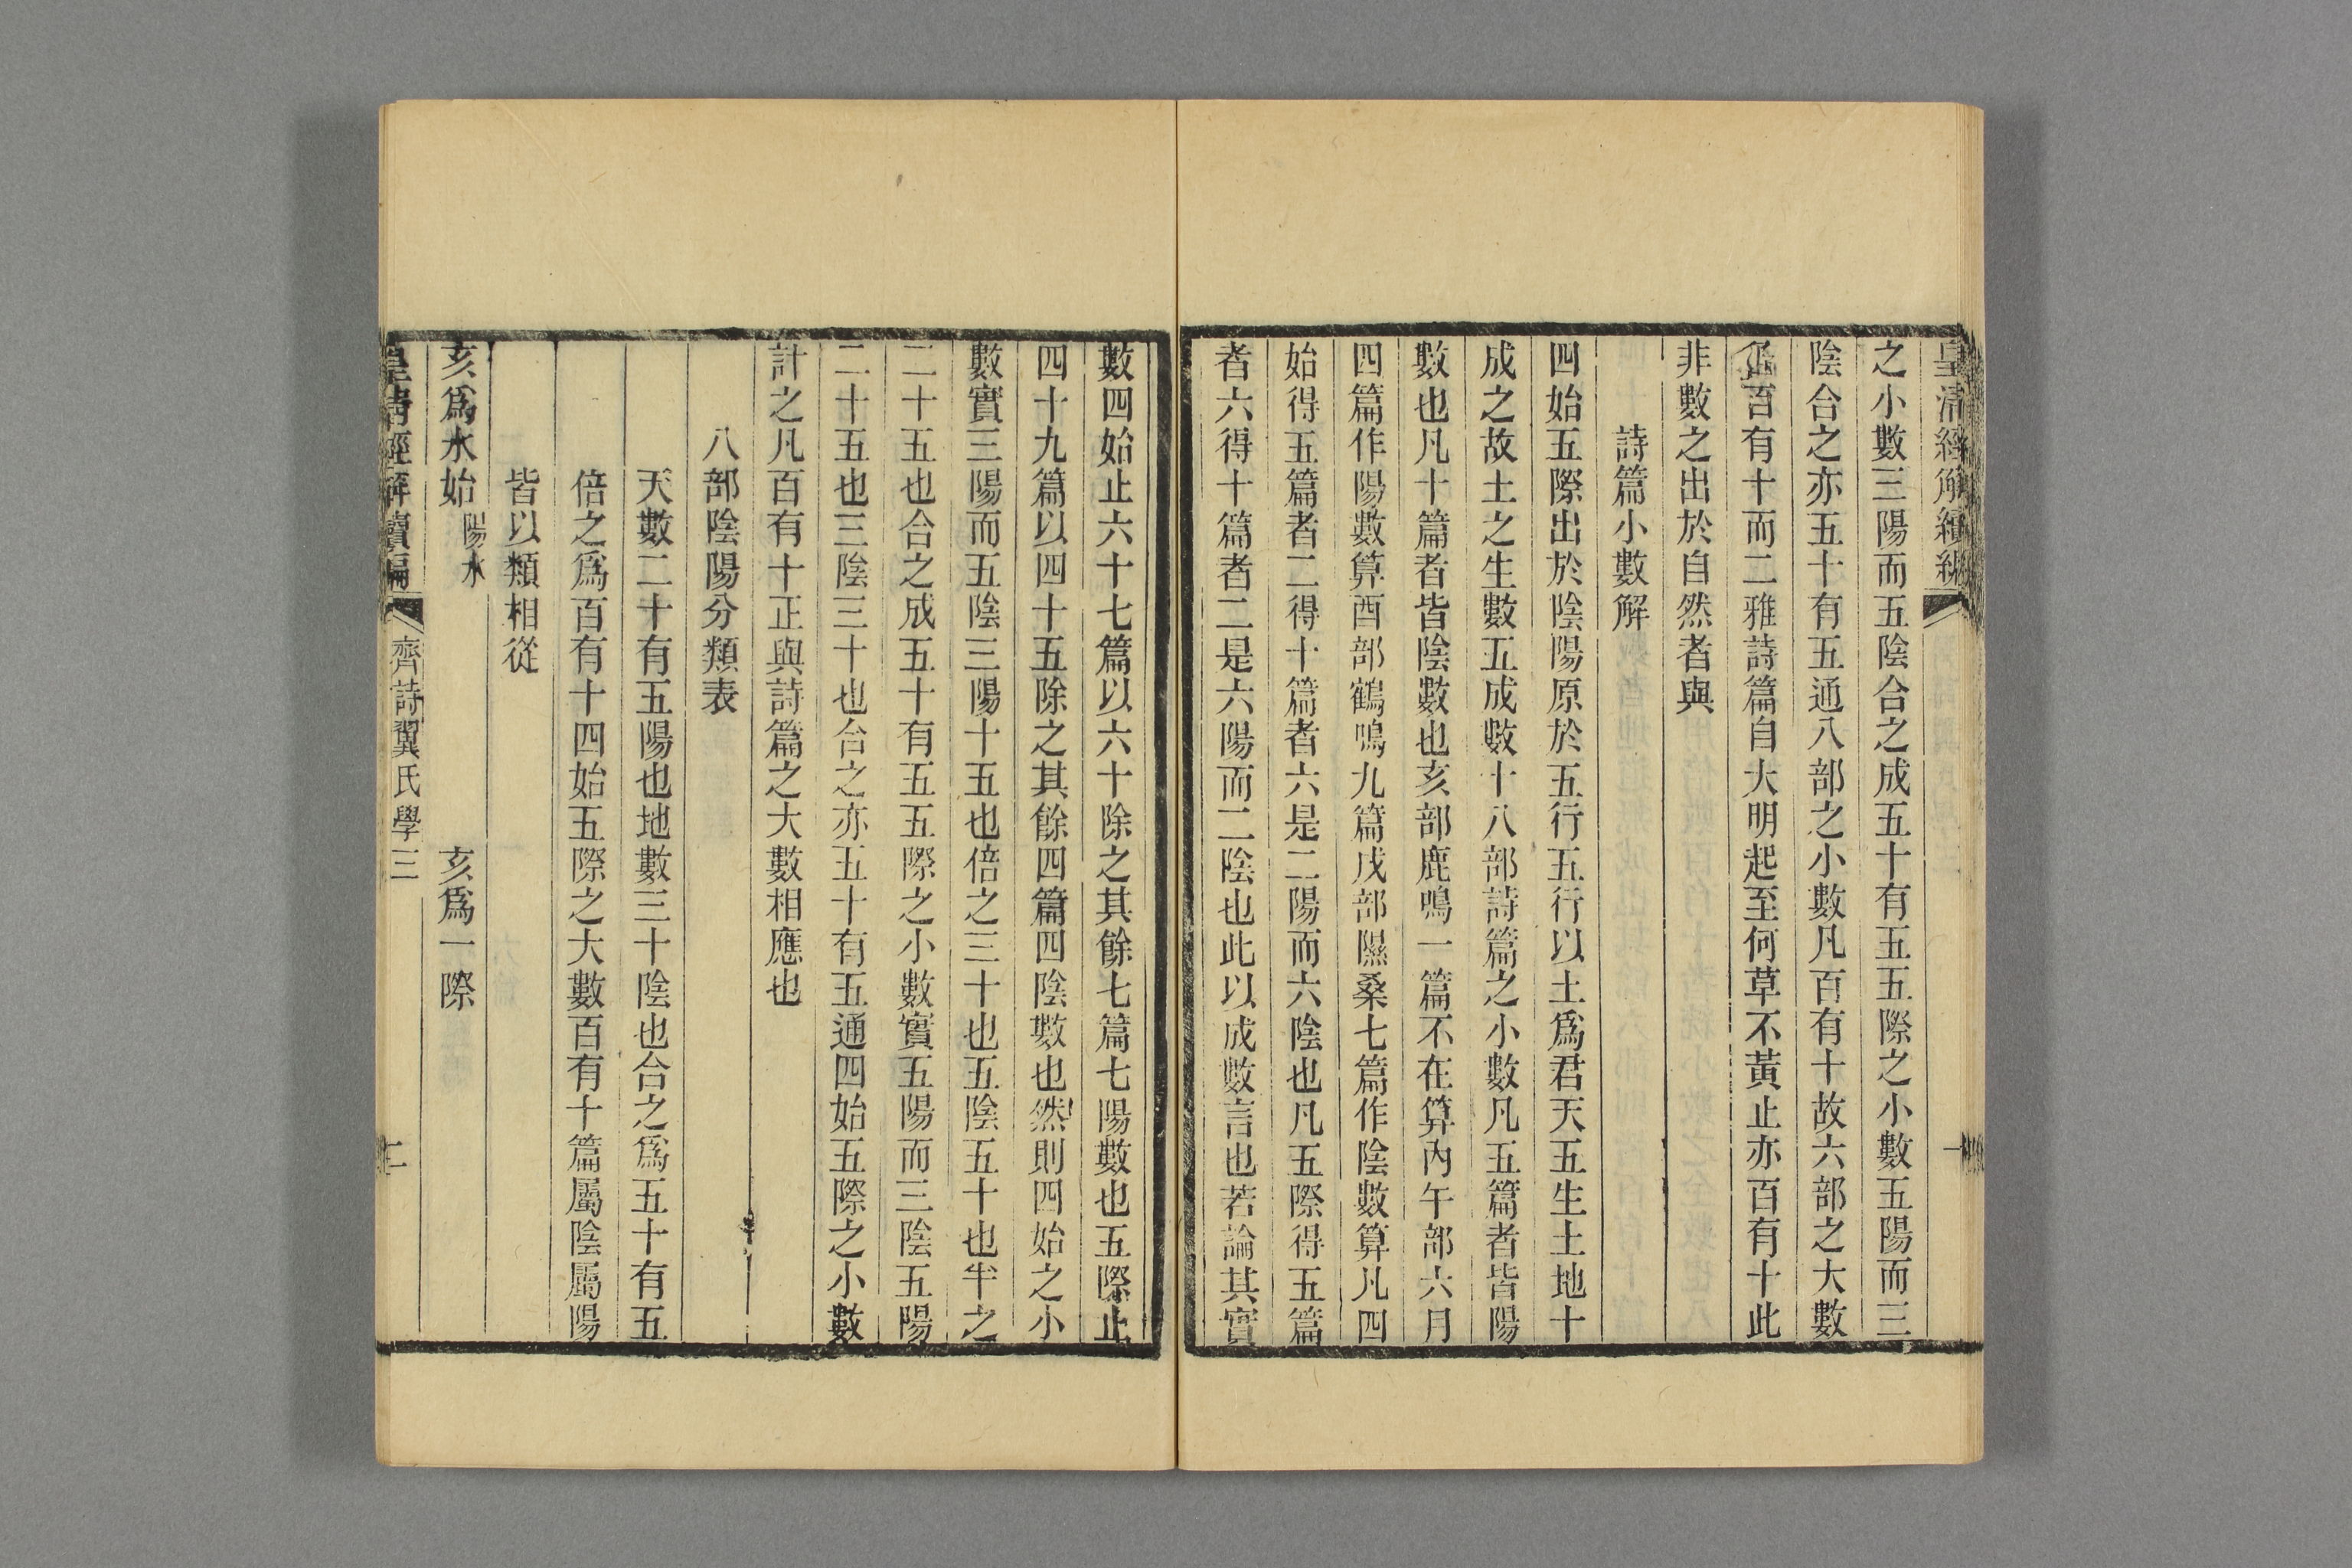 皇清經解續編
之小數三陽而五陰合之成五十有五五際之小數五陽而三
陰合之亦五十有五通八部之小數凡百有十故六部之大數
百有十而二雅詩篇自大明起至何草不黃止亦百有十此
非數之出於自然者與
詩篇小數解
四始五際出於陰陽原於五行五行以土爲君天五生土地十
成之故土之生數五成數十八部詩篇之小數凡五篇者皆陽
數也凡十篇者皆陰數也亥部鹿鳴一篇不在算內午部六月
四篇作陽數算酉部鶴鳴九篇戌部隰桑七篇作陰數算凡四
始得五篇者二得十篇者六是二陽而六陰也凡五際得五篇
者六得十篇者二是六陽而二陰也此以成數言也若論其實
數四始止六十七篇以六十除之其餘七篇七陽數也五際止
四十九篇以四十五除之其餘四篇四陰數也然則四始之小
數實三陽而五陰三陽十五也倍之三十也五陰五十也半之
二十五也合之成五十有五五際之小數實五陽而三陰五陽
二十五也三陰三十也合之亦五十有五通四始五際之小數
計之凡百有十正與詩篇之大數相應也
八部陰陽分類表
天數二十有五陽也地數三十陰也合之爲五十有五
倍之爲百有十四始五際之大數百有十篇屬陰屬陽
皆以類相從
亥爲水始 陽水 亥爲一際
皇清經解續編 齊詩翼氏學三 二